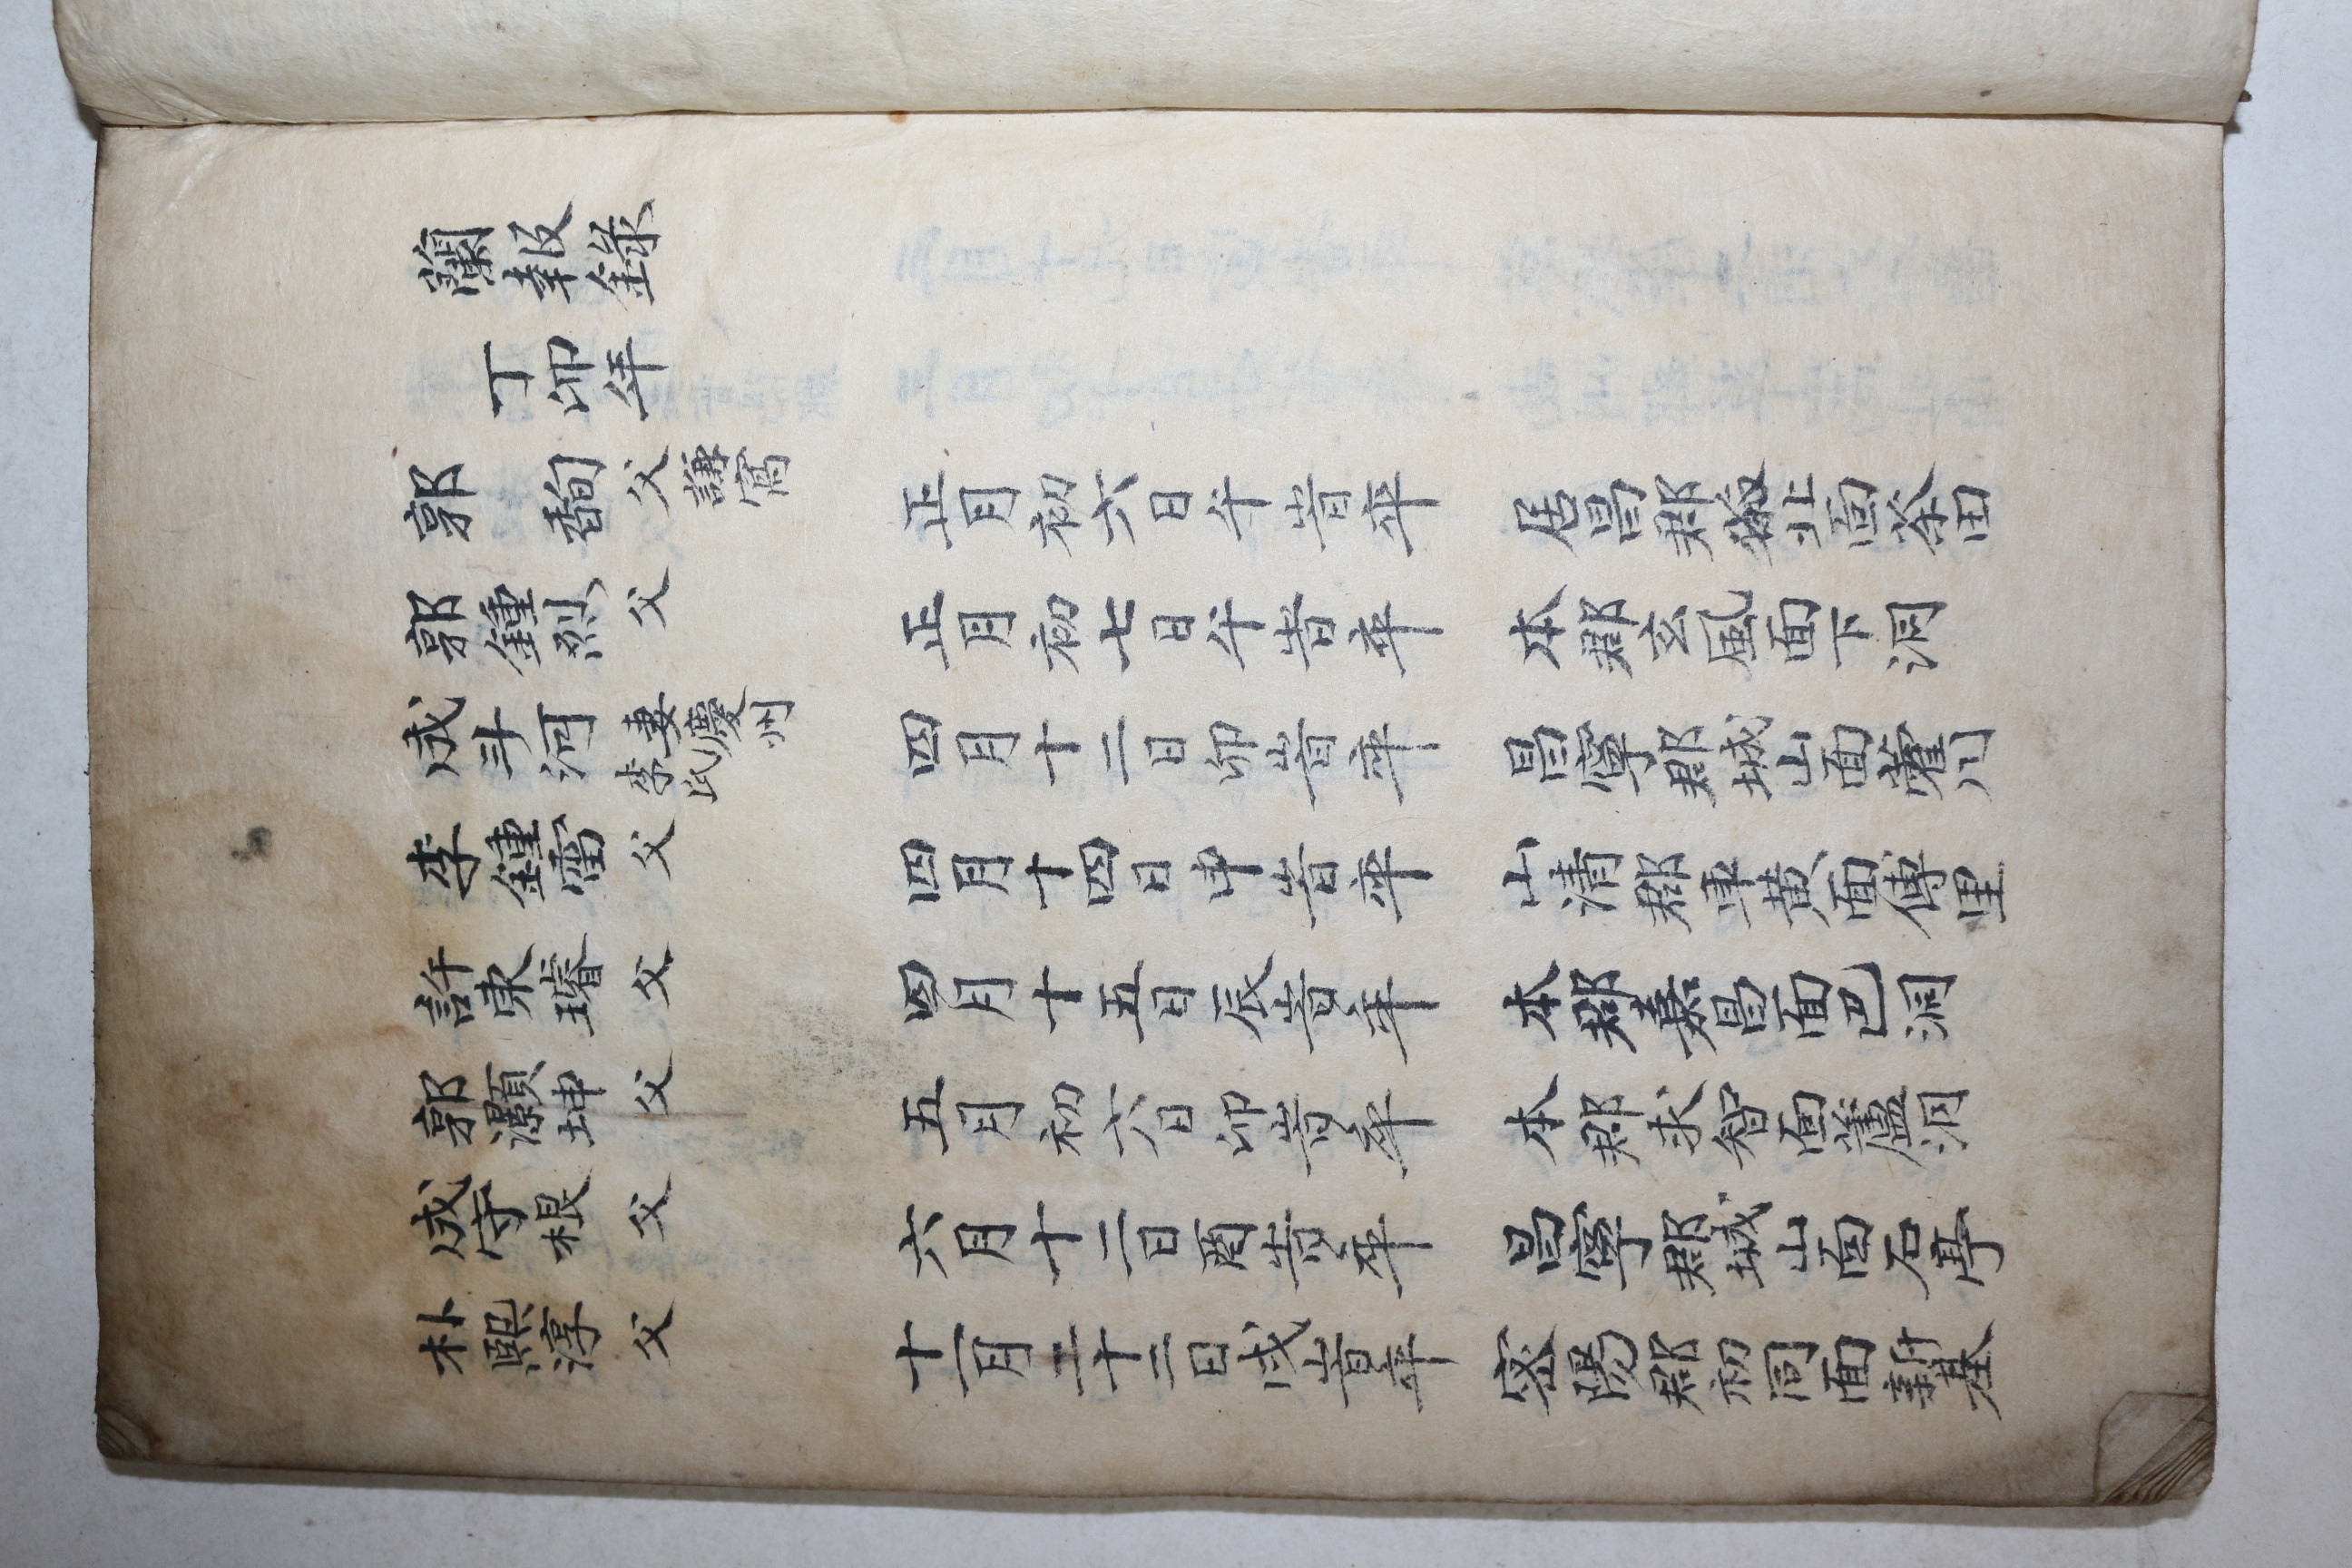 蘭報錄
丁卯年
郭 㽦 父 謙窩 正月初六日午時卒 居昌郡 上面茶田
郭鍾烈 父 正月初七日午時卒 本郡玄風面下洞
成斗河 妻慶州李氏 四月十二日卯時卒 昌寧郡城山面藿川
李鍾雷 父 四月十四日申時卒 山清郡車黃面傅里
許東璿 父 四月十五日辰時卒 本郡嘉昌面巴洞
郭灝坤 父 五月初六日卯時卒 本郡求智面 洞
成守根 父 六月十二日酉時卒 昌寧郡城山面石亭
朴熙淳 父 十一月二十二日戌時卒 密陽郡初同面新基